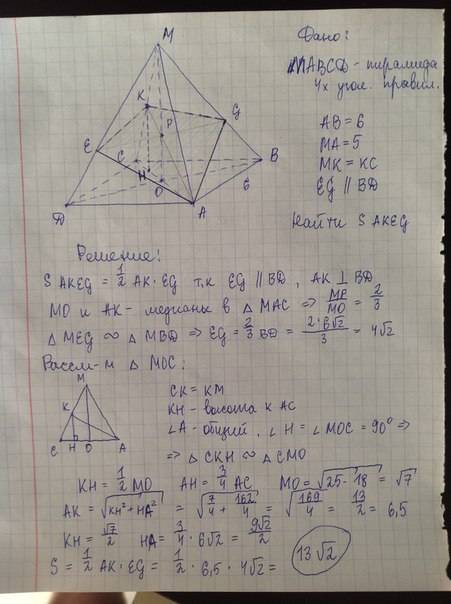 Дано:
MABCD - пирамида
4х угол. правил.
AB = 6
MA = 5
MK = KC
EG || BD
Найти S AKEG
M
K
G
P
E
C
B
H
O
6
D
A
Решение:
S AKEG = 1/2 AK · EG т.к EG || BD, AK ⊥ BD
MO и AK - медианы в △ MAC ⇒ MP/MO = 2/3
△ MEG ∾ △ MBD ⇒ EG = 2/3 BD = 2·6√2/3 = 4√2
Рассм-м △ MOC:
M
K
C H O A
CK = KM
KH - высота к AC
∠A - общий, ∠H = ∠MOC = 90° ⇒
⇒ △ CKH ∾ △ CMO
KH = 1/2 MO AH = 3/4 AC MO = √25-18 = √7
AK = √KH² + HA² = √7/4 + 162/4 = √169/4 = 13/2 = 6,5
KH = √7/2 HA = 3/4 · 6√2 = 9√2/2
S = 1/2 AK · EG = 1/2 · 6,5 · 4√2 = 13√2